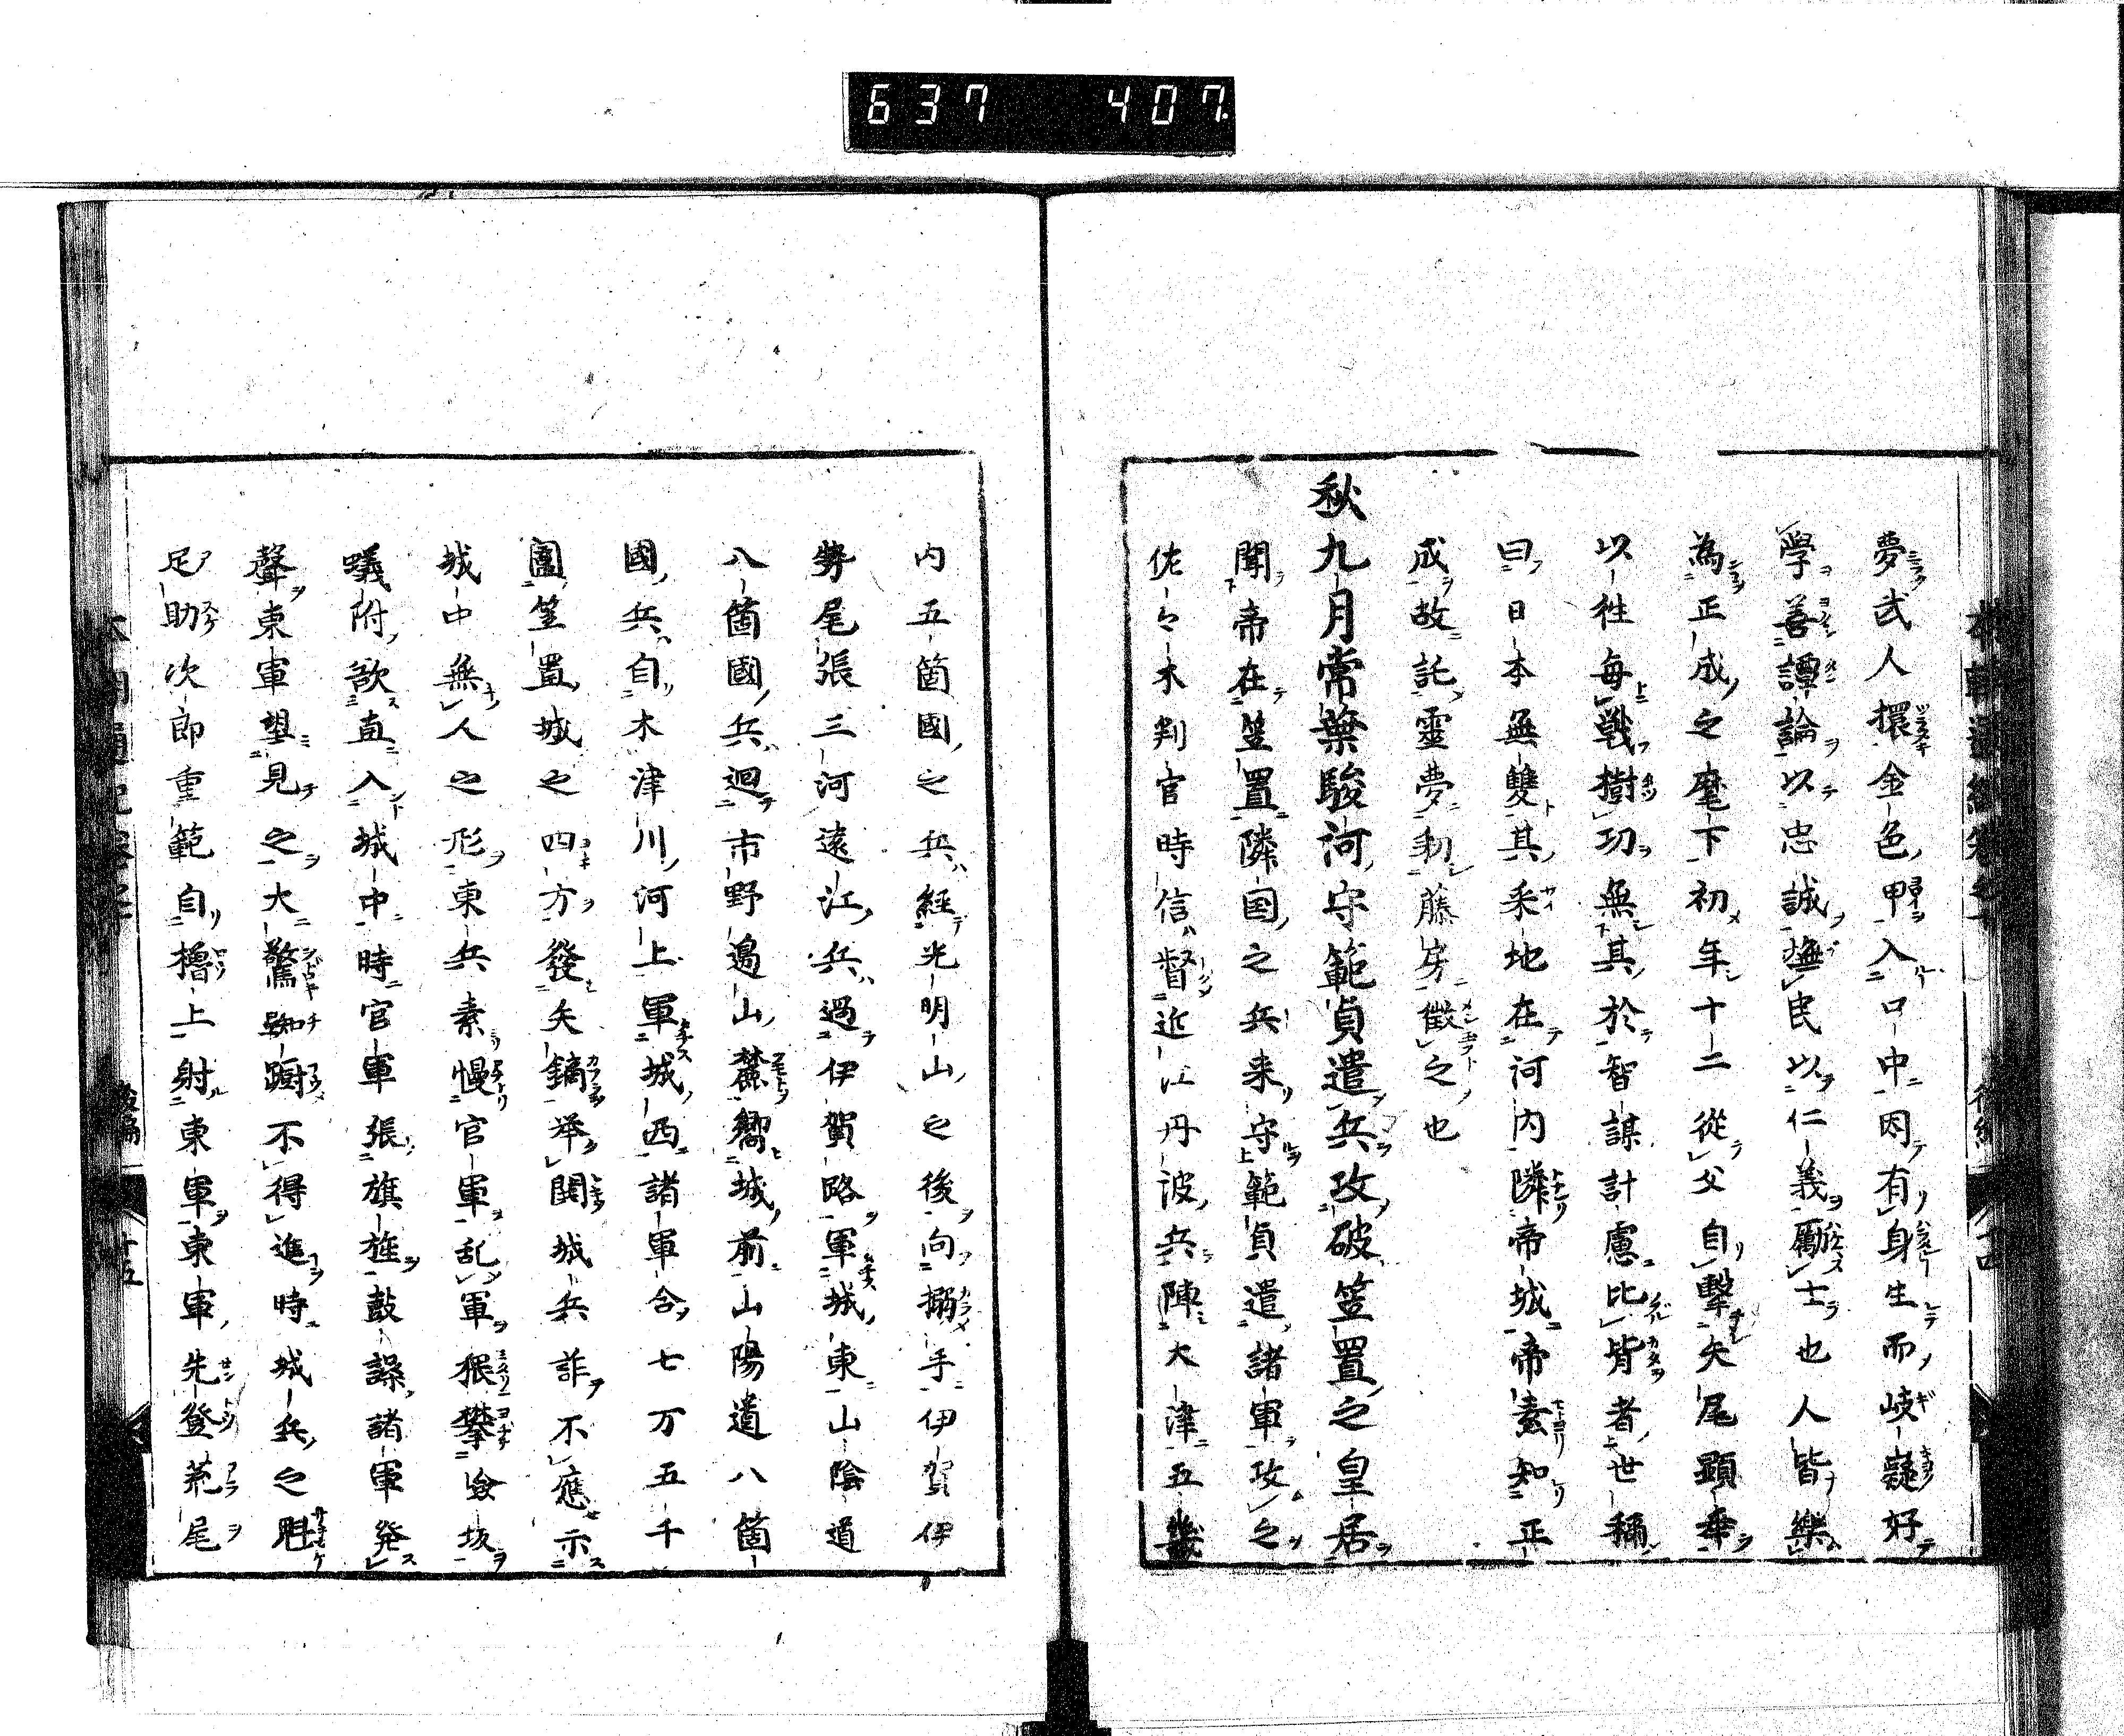 637 407
夢武人擐金色甲入口中因有身生而岐嶷好
學善譚論以忠誠撫民以仁義勵士也人皆樂
為正成之麾下初年十二從父自擊矢尾顕幸
以徃每戰樹功無其於智謀計慮比肯者世稱
曰日本無雙其釆地在河内隣帝城帝素知正
成故託靈夢勅藤房徴之也
秋九月常葉駿河守範貞遣兵攻破笠置之皇居
聞帝在笠置隣国之兵来守範貞遣諸軍攻之
佐々木判官時信督近江丹波兵陣大津五畿
内五箇國之兵經光明山之後向搦手伊賀伊
勢尾張三河遠江兵過伊賀路軍城東山陰道
八箇國兵迴市野邉山麓嚮城前山陽道八箇
國兵自木津川河上軍城西諸軍合七万五千
圍笠置城之四方發矢鏑挙鬨城兵詐不應示
城中無人之形東兵素慢官軍乱軍猥攀險坂
蟻附欲直入城中時官軍張旗旌鼓譟諸軍発
聲東軍望見之大驚踟蹰不得進時城兵之魁
足助次郎重範自櫓上射東軍東軍先登荒尾
十五